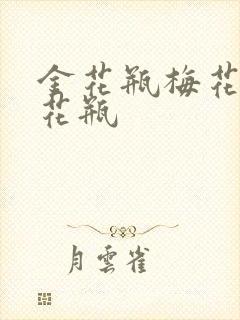 金花瓶梅花
花瓶
月雲雀